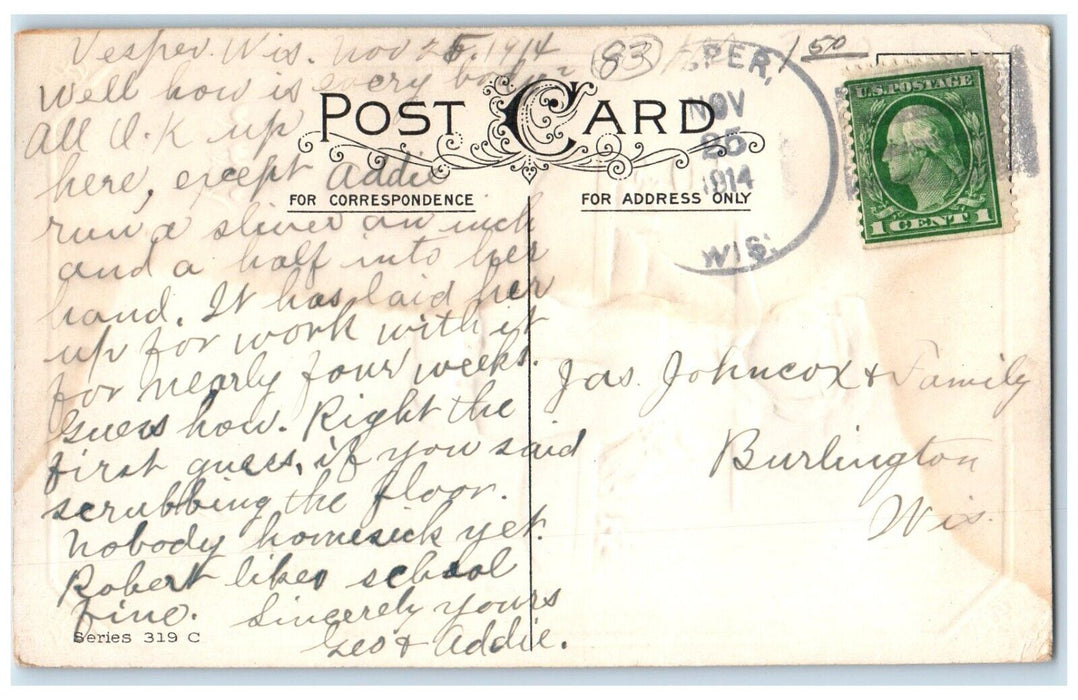 Vesper. Wis. Nov 25. 1914
83
1 50
Well how is every body?
All O.K up
here, except Addie
run a sliver an inch
and a half into her
hand. It has laid her
up for work with it
for nearly four weeks.
Guess how. Right the
first guess, if you said
scrubbing the floor.
Nobody homesick yet.
Robert likes school
fine. Sincerely yours
Geo & Addie.
Series 319 C
POST CARD
FOR CORRESPONDENCE
FOR ADDRESS ONLY
SPER,
NOV
25
1914
WIS.
U.S. POSTAGE
1 CENT 1
Jas. Johncox & Family
Burlington
Wis.